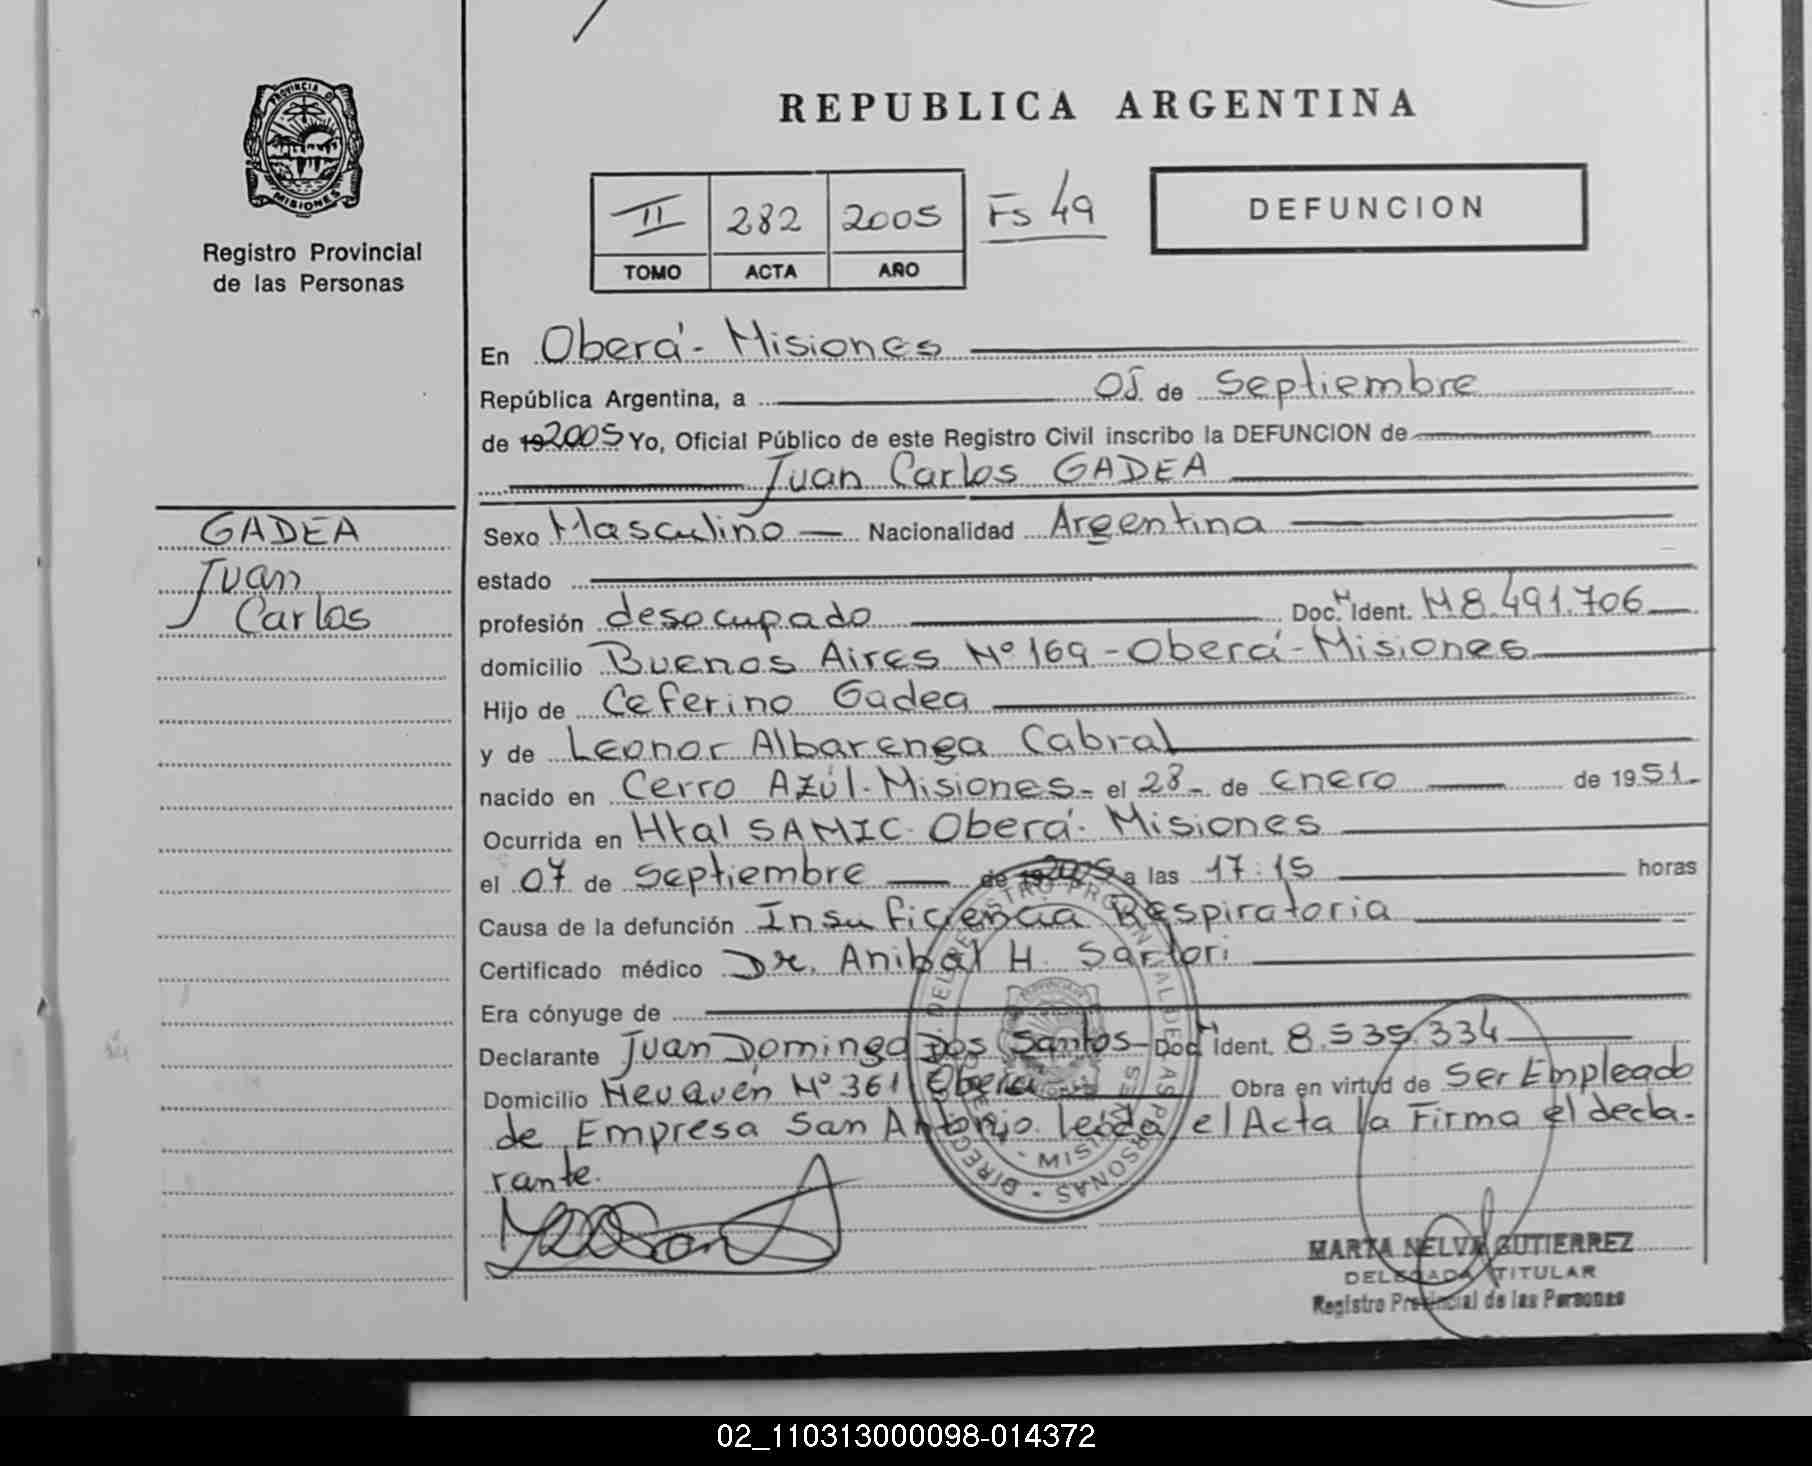 REPUBLICA ARGENTINA
PROVINCIA D
MISIONES
Registro Provincial
de las Personas
II 282 2005 Fs 49
TOMO ACTA AÑO
DEFUNCION
En Oberá - Misiones
República Argentina, a 05 de Septiembre
de 19 2005 Yo, Oficial Público de este Registro Civil inscribo la DEFUNCION de
Juan Carlos GADEA
GADEA
Juan
Carlos
Sexo Masculino Nacionalidad Argentina
estado
profesión desocupado Doc. N Ident. M 8.491.706
domicilio Buenos Aires Nº 169 - Oberá - Misiones
Hijo de Ceferino Gadea
y de Leonor Albarenga Cabral
nacido en Cerro Azúl - Misiones - el 28 - de Enero de 1951 -
Ocurrida en Htal SAMIC - Oberá - Misiones
el 04 de Septiembre de 19 2005 a las 17:15 horas
Causa de la defunción Insuficiencia Respiratoria
Certificado médico Dr. Anibal H. Sartori
Era cónyuge de
Declarante Juan Domingo Dos Santos - Doc. N Ident. 8.535.334
Domicilio Neuquén Nº 361 Oberá Obra en virtud de Ser Empleado
de Empresa San Antonio. leída el Acta la Firma el decla-
rante.
MARTA NELVA GUTIERREZ
DELEGADA TITULAR
Registro Provincial de las Personas
02_110313000098-014372